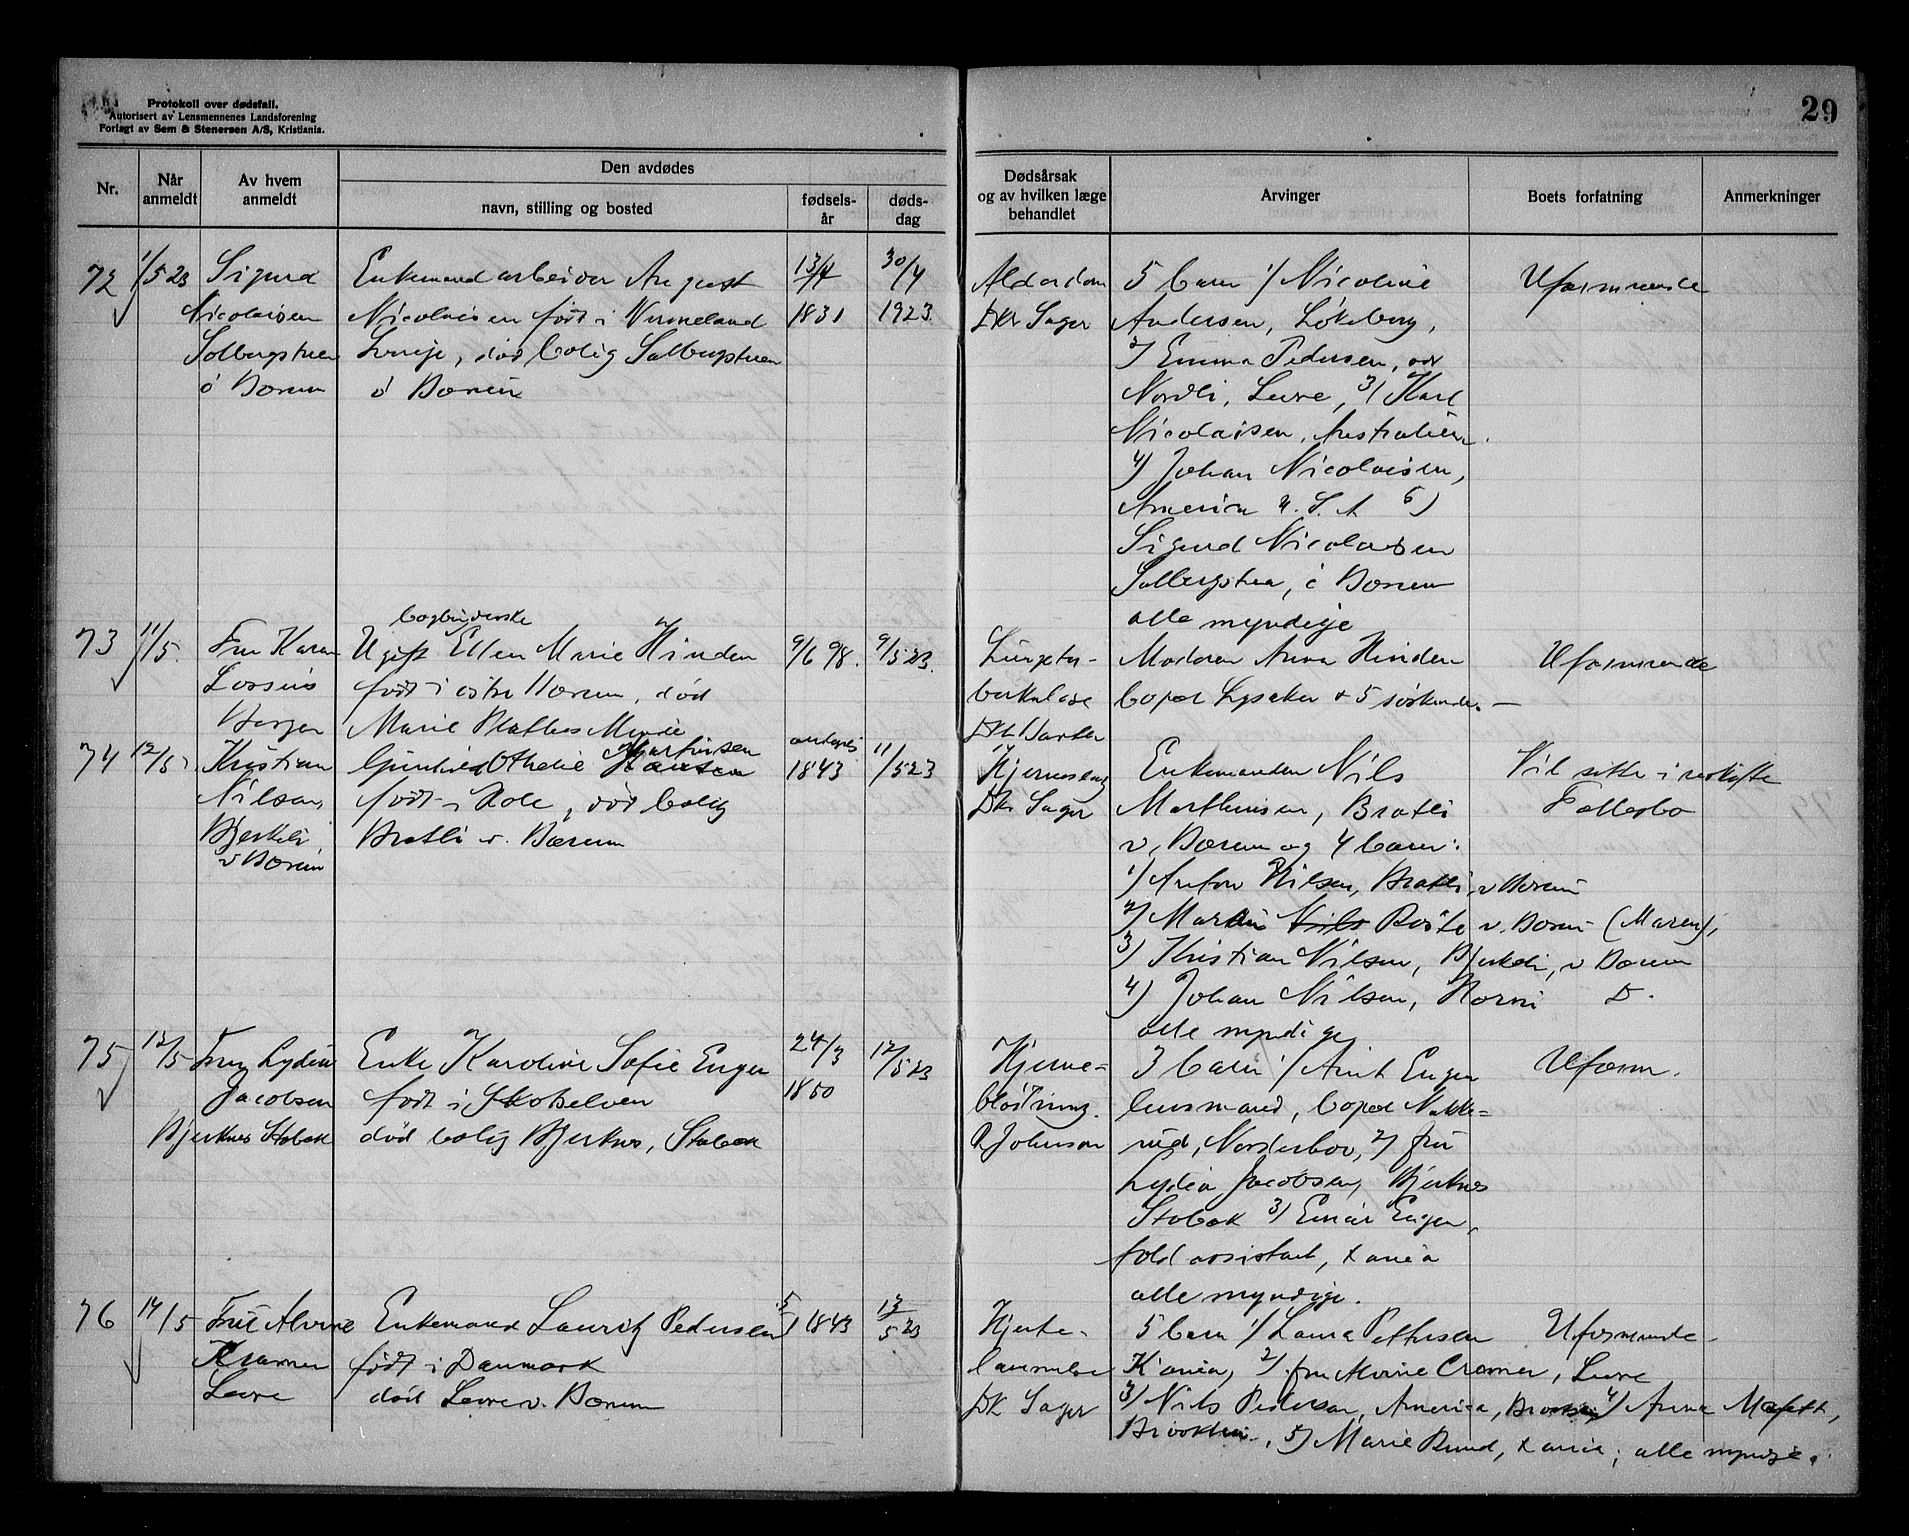 Protokoll over dødsfall.
Autorisert av Lensmennenes Landsforening
Forlagt av Sem & Stenersen A/S, Kristiania.
29
Nr.
Når anmeldt
Av hvem anmeldt
Den avdødes
navn, stilling og bosted
fødsels-år
døds-dag
Dødsårsak og av hvilken læge behandlet
Arvinger
Boets forfatning
Anmerkninger
72
1/5 23
Sigurd
Nicolaisen
Solbergstuen
ö Bærum
Enkemand arbeider August
Nicolaisen født i Vermeland
Sverije, död bolig Solbergstuen
ö Bærum
13/4
1831
30/4
1923
Alderdom
Dr Sager
5 barn 1/ Nicoline
Andersen, Løkeberg,
2/ Emma Pedersen,
Nordli, Levre, 3/ Karl
Nicolaisen, Australien.
4) Johan Nicolaisen,
Amerika U. S. A 5)
Sigurd Nicolaisen
Solbergstuen, ö Bærum
alle myndige
Uformuende
73
11/5.
Fru Karen
Lossius
Bergen
bogbinderske
Ugift Ellen Marie Hinden
født i östre Bærum, död
Marie Plathes Minde
9/6 98.
9/5 23.
Lungetu-
berkulose
Moderen Anna Hinden
bopæl Lysaker + 5 söskende.
Uformuende
74
12/5
Kristian
Nilsen,
Bjerkeli
v Bærum
Martinsen
Othelie Hansen
født i Hole, död bolig
Bratli v. Bærum
1843
11/5 23
Hjerneslag
Dr. Sager
Enkemanden Nils
Marthinsen, Bratli
v, Bærum og 4 barn:
1) Anton Nilsen, Bratli, v Bærum
2) Nils v. Bærum (Maren),
3) Kristian Nilsen, Bjerkeli, v Bærum
4) Johan Nilsen, D.
alle myndige
Vil sitte i uskifte
Fællesbo
75
12/5
Fru Lydia
Jacobsen
Bjerknes Stabæk
Enke Karoline Sofie Enger
født i Skotselven
död bolig Bjerknes, Stabæk
24/3
1850
12/5 23
Hjerne-
blödning.
Johnson
3 barn 1/ Enger
lensmand, bopæl Nakke-
rud, Norderhov, 2/ fru
Lydia Jacobsen, Bjerknes
Stabæk 3) Einar Enger,
told assistant, Kania
alle myndige.
Uform.
76
14/5
Fru Alvine
Kramer
Levre
Enkemand Lauritz Pedersen
født i Danmark
död Levre v. Bærum
5/1 1843
13/5 23
Hjerte-
lammelse
Dr Sager
5 barn 1/ Laura Pettersen
Kania, 2/ fru Alvine Cramer, Levre
3) Nils Pedersen, Amerika, 4) Anna
5) Marie Kania, alle myndige.
Uformuende